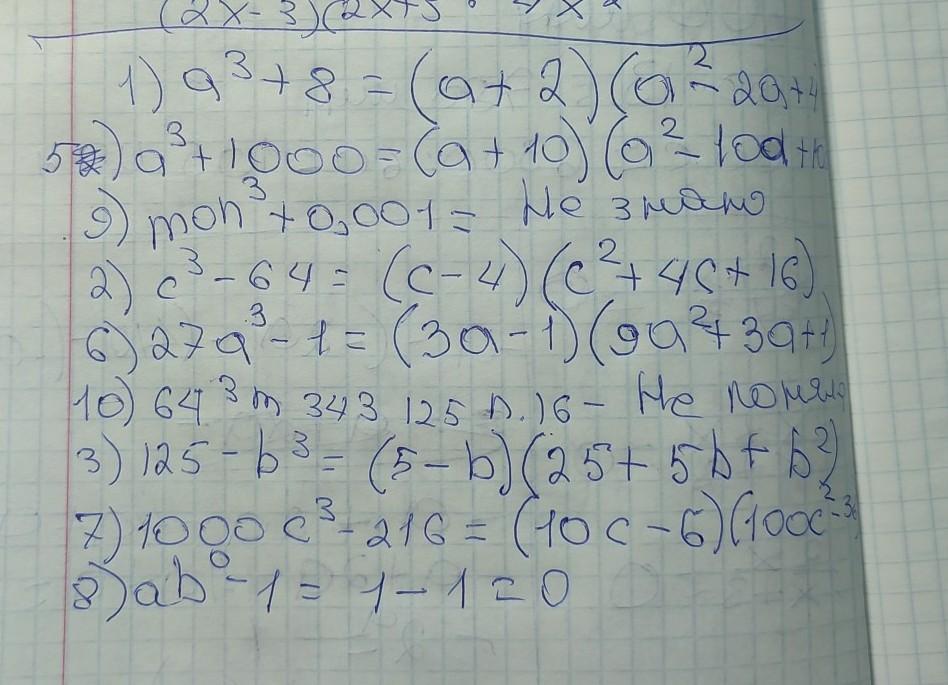 (2x-3)(2x+3
1) a³ + 8 = (a + 2) (a² - 2a + 4
5) a³ + 1000 = (a + 10) (a² - 10a + 10
9) mon³ + 0,001 = Не знаю
2) c³ - 64 = (c - 4) (c² + 4c + 16)
6) 27a³ - 1 = (3a - 1) (9a² + 3a + 1)
10) 64³ m 343 125 n. 16 - Не поняла
3) 125 - b³ = (5 - b) (25 + 5b + b²)
7) 1000 c³ - 216 = (10c - 6) (100c² -
8) ab⁰ - 1 = 1 - 1 = 0